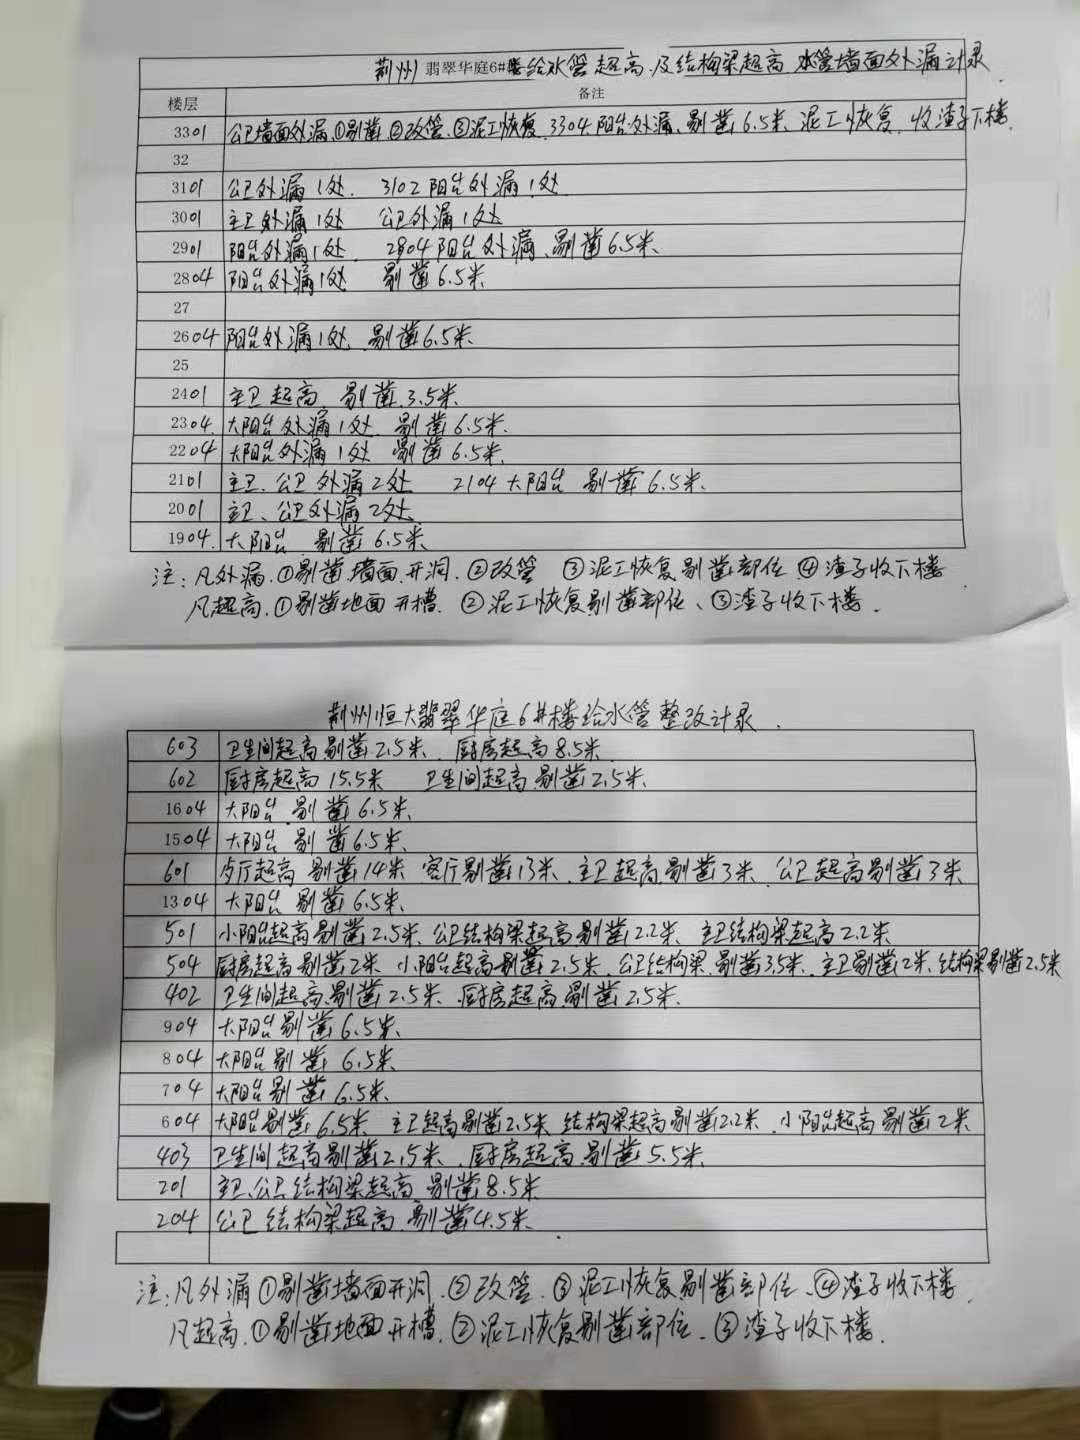 荆州翡翠华庭6#楼给水管超高及结构梁超高水管墙面外漏计录
楼层 备注
3301 公卫墙面外漏、①剔凿②改管、③泥工恢复、3304阳台外漏、剔凿6.5米、泥工恢复、收渣子下楼、
32
3101 公卫外漏1处、 3102阳台外漏1处
3001 主卫外漏1处 公卫外漏1处
2901 阳台外漏1处、 2904阳台外漏、剔凿6.5米、
2804 阳台外漏1处 剔凿6.5米
27
2604 阳台外漏1处、剔凿6.5米、
25
2401 主卫超高、剔凿3.5米、
2304 大阳台外漏1处、剔凿6.5米、
2204 大阳台外漏1处 剔凿6.5米、
2101 主卫、公卫外漏2处 2104大阳台 剔凿6.5米、
2001 主卫、公卫外漏2处、
1904 大阳台 剔凿6.5米、
注:凡外漏、①剔凿墙面开洞、②改管 ③泥工恢复剔凿部位④渣子收下楼
凡超高、①剔凿地面开槽、②泥工恢复剔凿部位、③渣子收下楼、
荆州恒大翡翠华庭6#楼给水管整改计录、
603 卫生间超高剔凿2.5米、厨房超高8.5米、
602 厨房超高15.5米 卫生间超高剔凿2.5米、
1604 大阳台、剔凿6.5米、
1504 大阳台 剔凿6.5米、
601 歺厅超高 剔凿14米 客厅剔凿13米、主卫超高剔凿3米、公卫超高剔凿3米
1304 大阳台 剔凿6.5米、
501 小阳台超高剔凿2.5米、公卫结构梁超高剔凿2.2米、主卫结构梁超高2.2米
504 厨房超高剔凿2米 小阳台超高剔凿2.5米、公卫结构梁、剔凿3.5米、主卫剔凿2米、结构梁剔凿2.5米
402 卫生间超高剔凿2.5米、厨房超高、剔凿2.5米、
904 大阳台剔凿6.5米、
804 大阳台剔凿 6.5米、
704 大阳台剔凿6.5米、
604 大阳台剔凿6.5米 主卫超高剔凿2.5米 结构梁超高剔凿2.2米、小阳台超高剔凿2米
403 卫生间超高剔凿2.5米、厨房超高、剔凿5.5米、
201 主卫、公卫结构梁超高、剔凿8.5米
204 公卫结构梁超高、剔凿4.5米、
注:凡外漏①剔凿墙面开洞、②改管、③泥工恢复剔凿部位、④渣子收下楼、
凡超高、①剔凿地面开槽、②泥工恢复剔凿部位、③渣子收下楼、